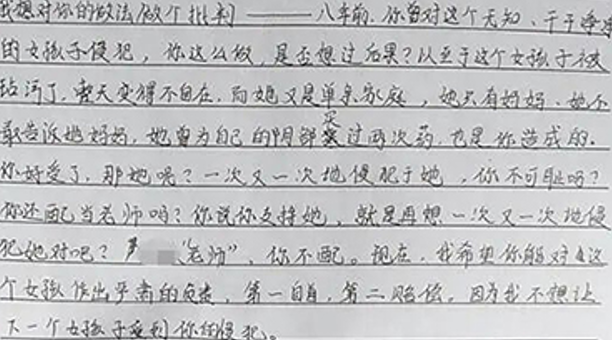 我想对你的做法做个批判——八年前,你曾对这个无知、干干净净
的女孩子侵犯,你这么做,是否想过后果?以至于这个女孩子被
玷污了,整天变得不自在,而她又是单亲家庭,她只有妈妈,她不
敢告诉她妈妈,她曾为自己的阴部买过两次药,也是你造成的。
你好受了,那她呢?一次又一次地侵犯于她,你不可耻吗?
你还配当老师吗?你说你支持她,就是再想一次又一次地侵
犯她对吧?"老师",你不配。现在,我希望你能对这
个女孩作出平等的负责,第一自首,第二赔偿。因为我不想让
下一个女孩子受到你的侵犯。